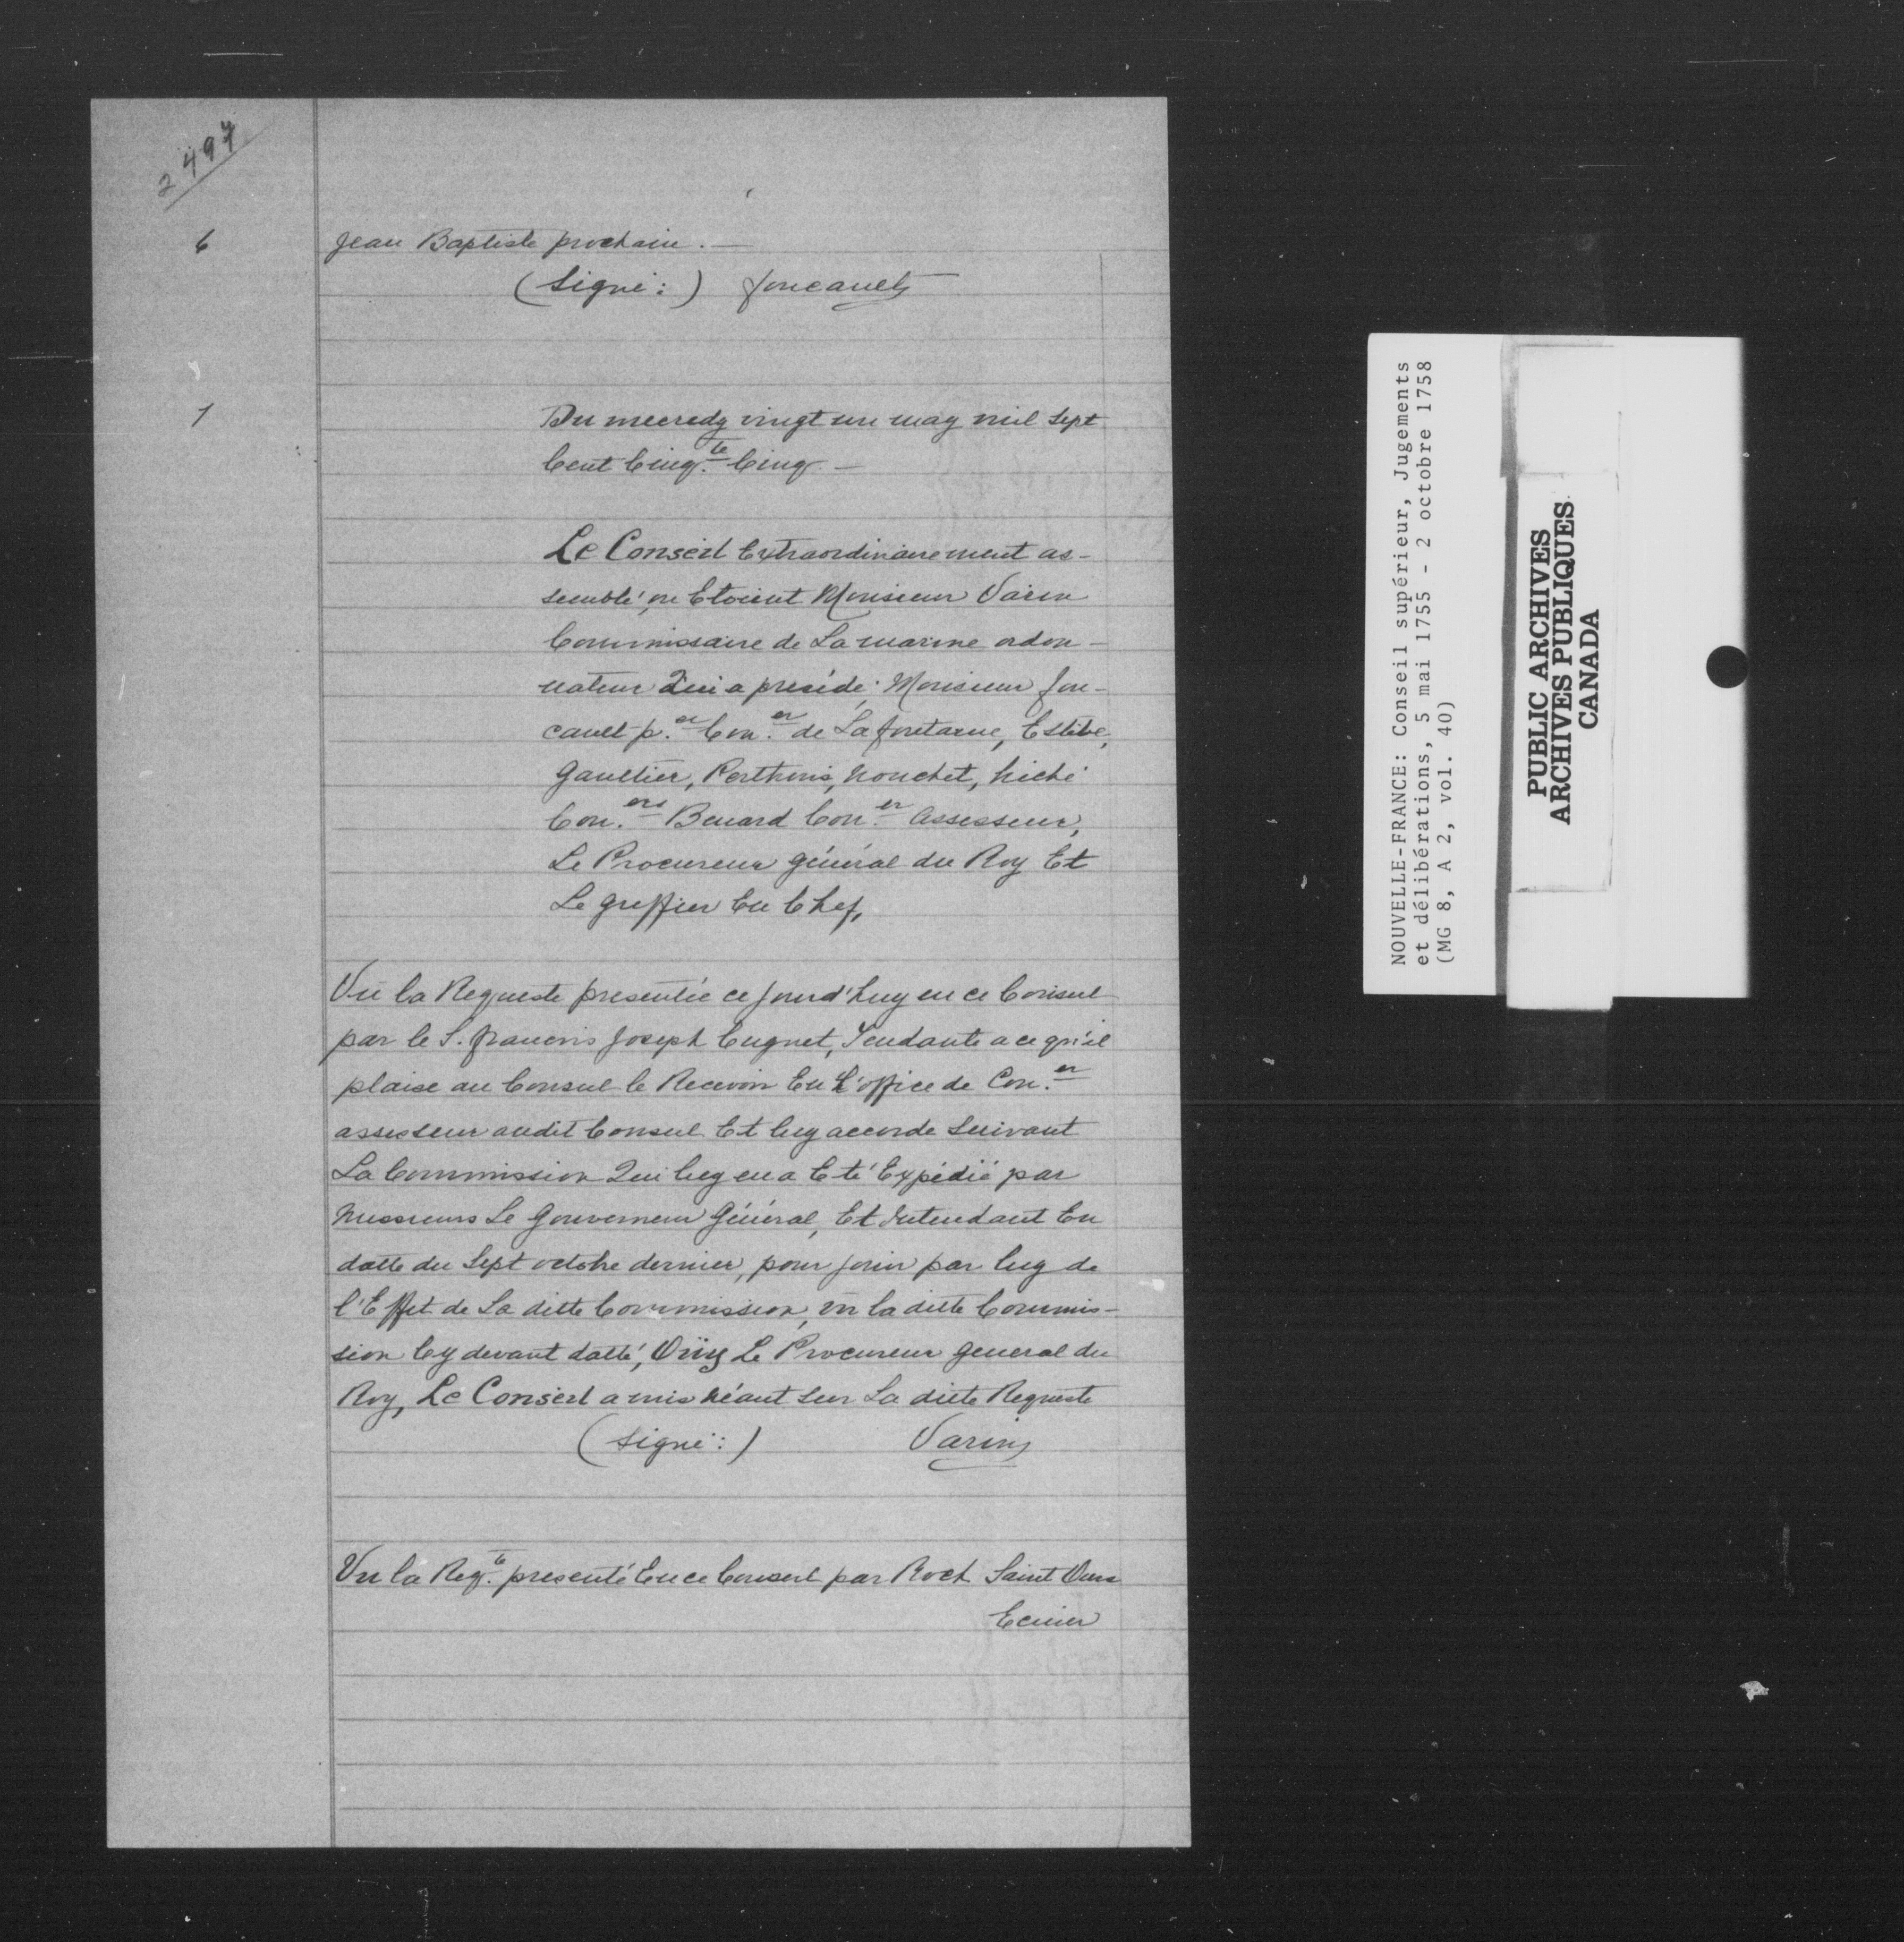 2497
6
Jean Baptiste prochain. —
(Signé:) foucault
7
Du mecredy vingt un may mil Sept
Cent Cinq.te Cinq —
Le Conseil Extraordinairement as-
semblé, ou Etoient Monsieur Varin
Commissaire de La marine ordon-
nateur Qui a preside; Monsieur fou-
cault p.er Con.er de Lafontaine, Estebe,
Gaultier, Perthuis, Nouchet, hiché
Con.ers Benard Con.er Assesseur,
Le Procureur général du Roy Et
Le greffier En Chef,
Vû la Requeste presentée ce jourd'huy en ce Conseil
par le S. françois Joseph Cugnet, Tendante a ce qu'il
plaise au Conseil le Recevoir En L'office de Con.er
assesseur audit Conseil Et luy accorde Suivant
La Commission Qui luy en a Eté Expédié par
Messieurs Le Gouverneur Général, Et Intendant En
datte du Sept octobre dernier, pour jouir par luy de
l'Effet de La ditte Commission, vû la ditte Commis-
sion Cy devant datté, Oüy Le Procureur general du
Roy, Le Conseil a mis Néant sur La ditte Requeste
(signé:) Varin
Vu la Req.te presenté En ce Conseil par Roch Saint Ours
Ecuier
NOUVELLE-FRANCE: Conseil supérieur, Jugements
et délibérations, 5 mai 1755 - 2 octobre 1758
(MG 8, A 2, vol. 40)
PUBLIC ARCHIVES
ARCHIVES PUBLIQUES
CANADA